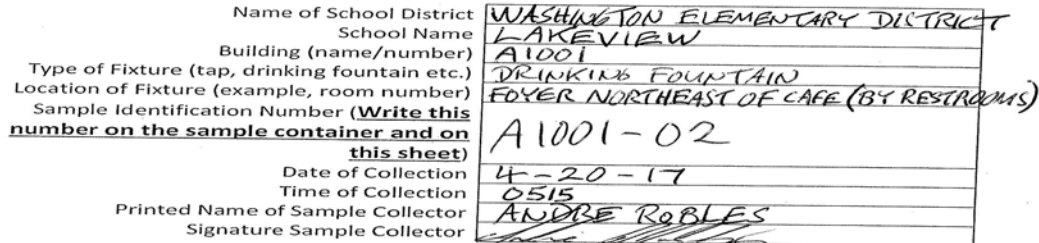 Name of School District WASHINGTON ELEMENTARY DISTRICT
School Name LAKEVIEW
Building (name/number) A1001
Type of Fixture (tap, drinking fountain etc.) DRINKING FOUNTAIN
Location of Fixture (example, room number) FOYER NORTHEAST OF CAFE (BY RESTROOMS)
Sample Identification Number (Write this
number on the sample container and on
this sheet) A1001-02
Date of Collection 4-20-17
Time of Collection 0515
Printed Name of Sample Collector ANDRE ROBLES
Signature Sample Collector